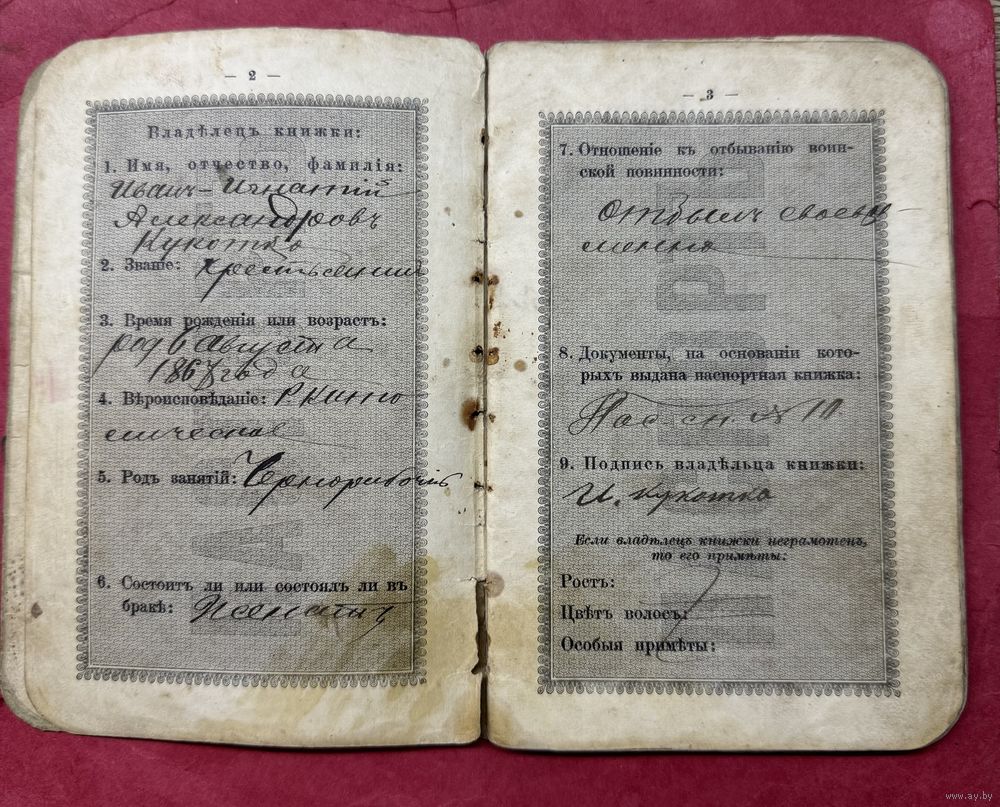 — 2 —
Владѣлецъ книжки:
1. Имя, отчество, фамилія:
Иванъ-Игнатій
Александровъ
Кукотко
2. Званіе: крестьянинъ
3. Время рожденія или возрастъ:
род 6 августа
года
4. Вѣроисповѣданіе: Р. Като
лическое
5. Родъ занятій: Чернорабочій
6. Состоитъ ли или состоялъ ли въ
бракѣ: Женатъ
— 3 —
7. Отношеніе къ отбыванію воин-
ской повинности:
отбылъ своевре
менно
8. Документы, на основаніи кото-
рыхъ выдана паспортная книжка:
9. Подпись владѣльца книжки:
И. Кукотко
Если владѣлецъ книжки неграмотенъ,
то его примѣты:
Ростъ:
Цвѣтъ волосъ:
Особыя примѣты:
www.ay.by